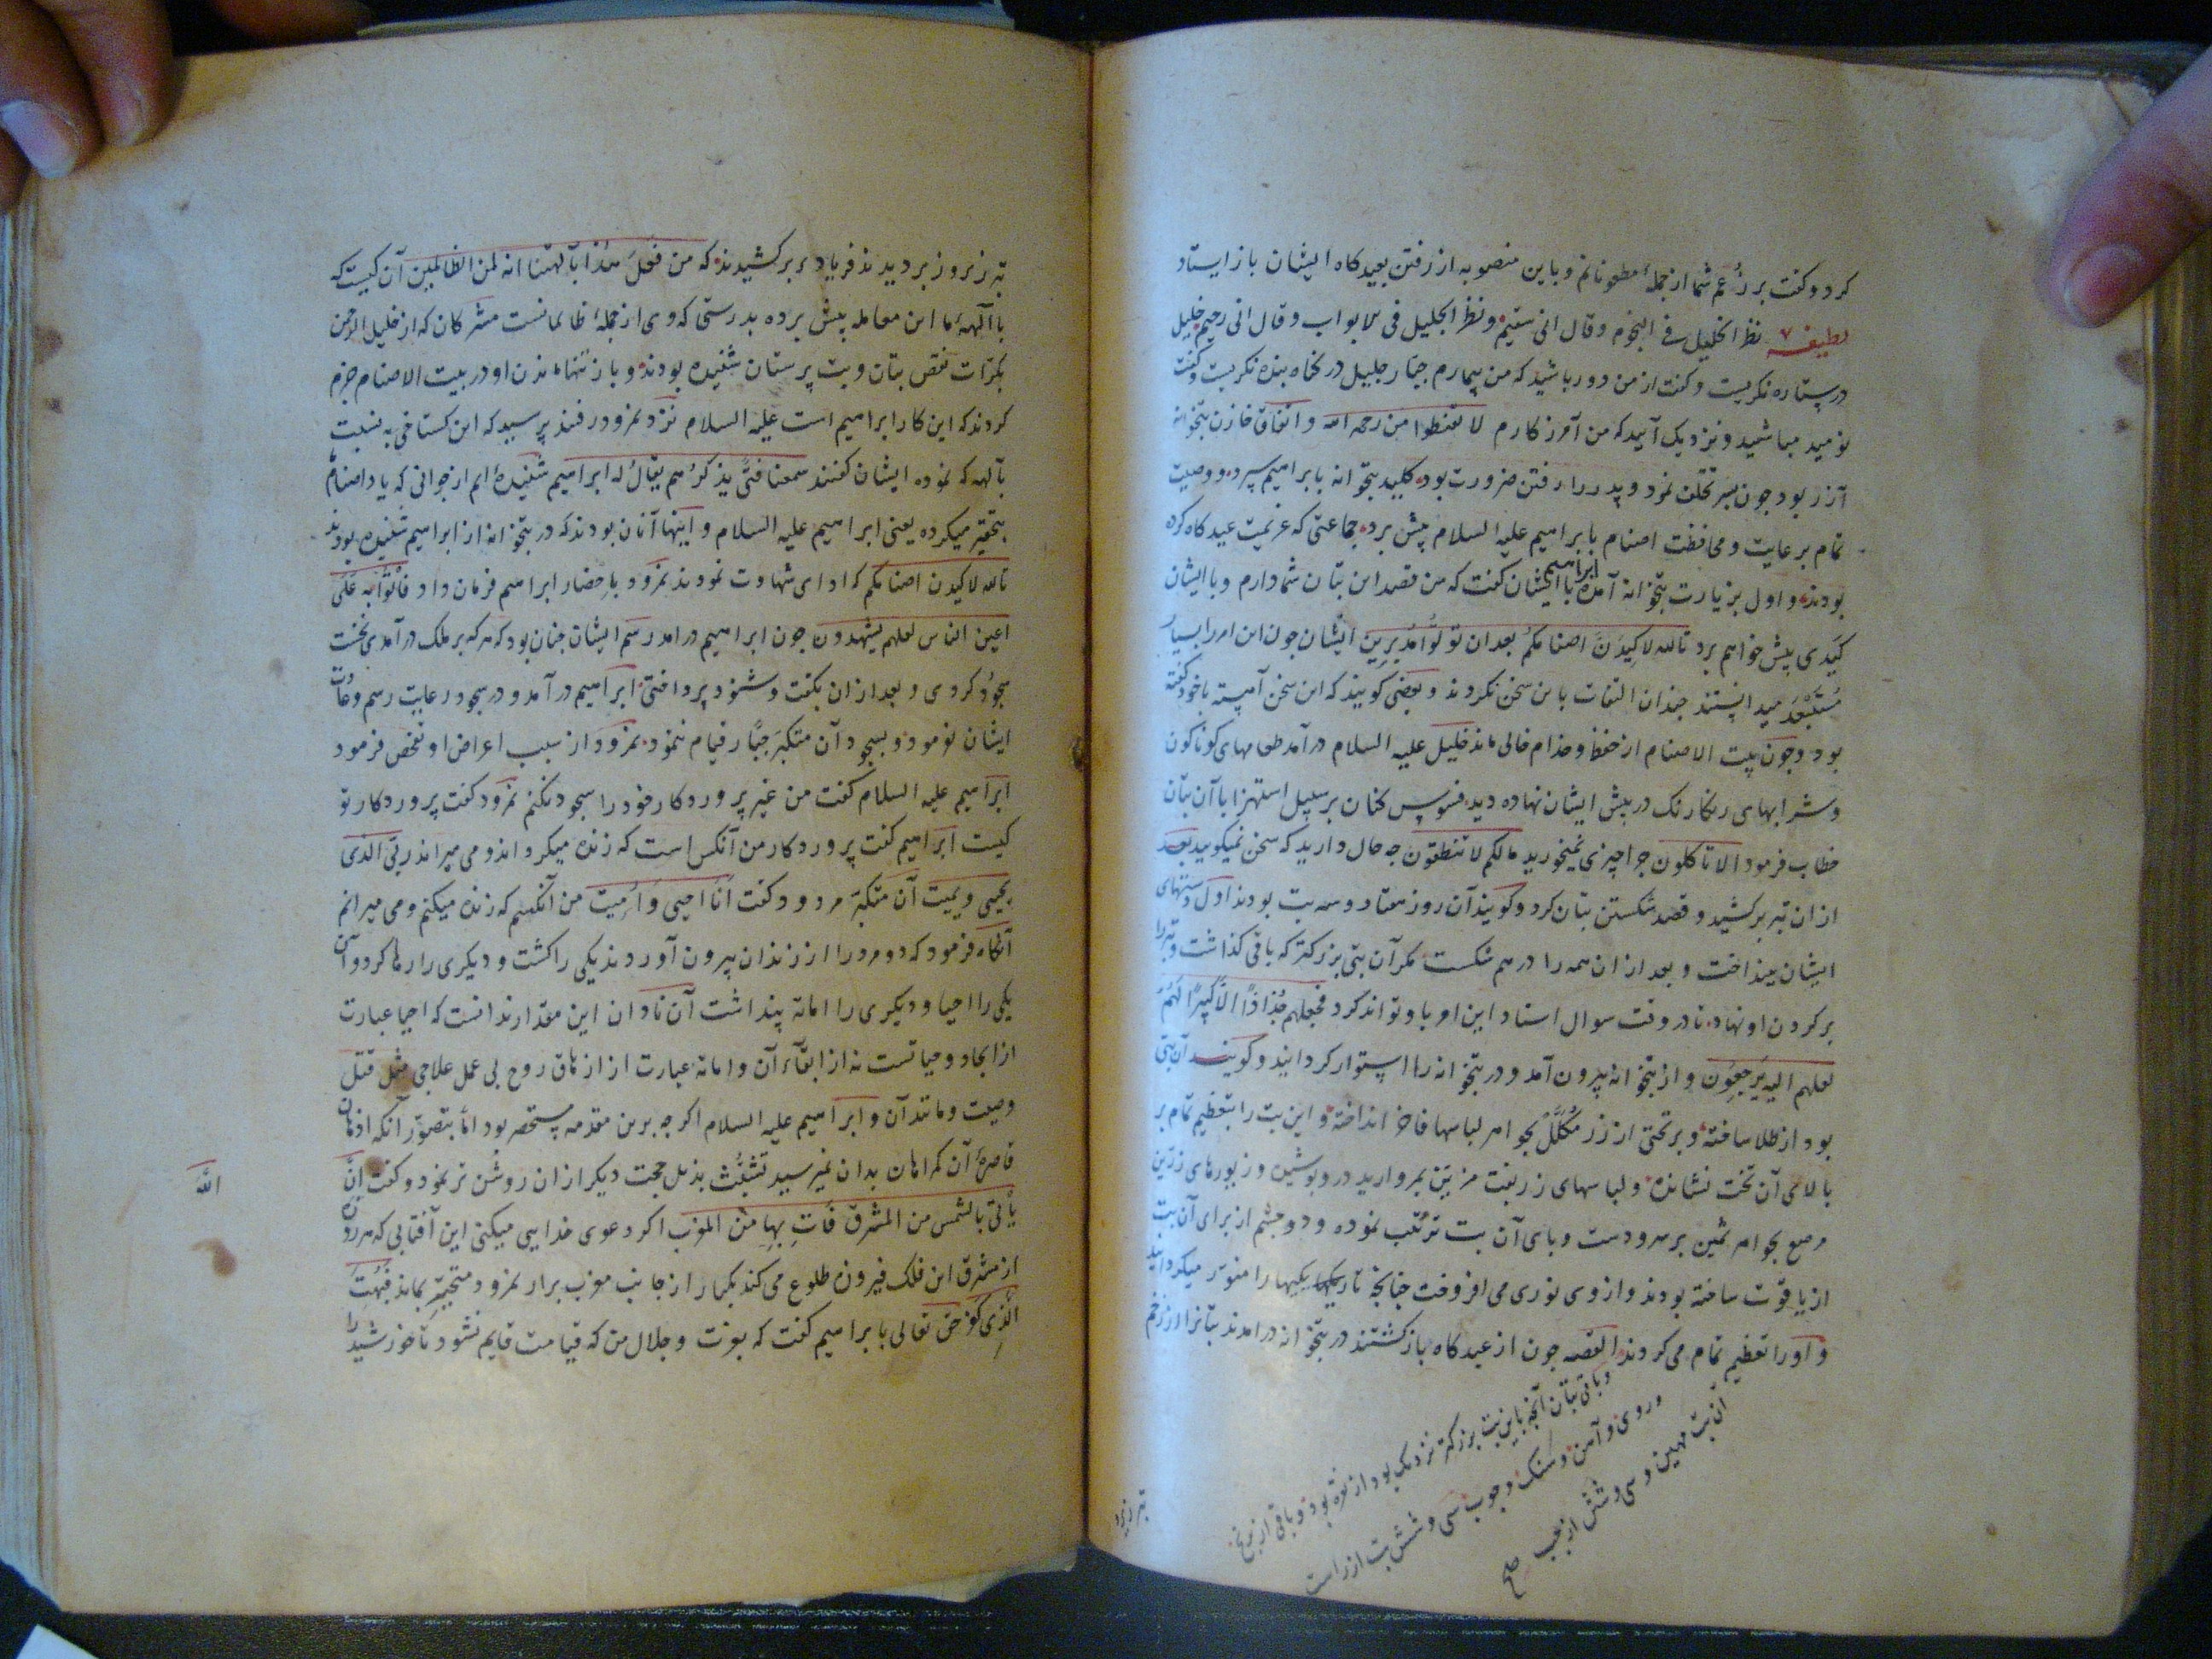 کرد و کفت بر زُعم شما از جملهٔ مطعونانم و باین منصوبه از رفتن بعیدکاه ایشان باز ایستاد
لطیفه نظر الخلیل فی النجوم و قال انی سقیم و نظر الجلیل فی الابواب و قال انی رحیم خلیل
در ستاره نکریست و کفت از من دور باشید که من بیمارم جبّار جلیل در کناه بنده نکریست و کفت
نومید مباشید و نزدیک آیید که من آمرزکارم لا تقنطوا من رحمة الله و اتفاق خازن بتخوانه
آزر بود جون پسر تخلف نمود و پدر را رفتن ضرورت بود کلید بتخوانه بابراهیم سپرد و وصیت
تمام برعایت و محافظت اصنام بابراهیم علیه السلام پیش برد جماعتی که عزیمت عیدکاه کرده
بودند و اول بزیارت بتخوانه آمده ابراهیم با ایشان کفت که من قصد این بتان شما دارم و با ایشان
کیدی پیش خواهم برد تالله لاکیدَنَّ اصنامکم بعد ان تولّوا مدبرین ایشان جون این امر را بسیار
مُستَبْعَد میدانستند جندان التفات باین سخن نکردند و بعضی کویند که این سخن آهسته باخود کفته
بود و جون بیت الاصنام از حفظ و خدام خالی ماند خلیل علیه السلام درآمد طعامهای کوناکون
و شرابهای رنکارنک در پیش ایشان نهاده دید فسوس کنان بر سبیل استهزا با آن بتان
خطاب فرمود الا تاکلون جرا جیزی نمیخورید مالکم لا تنطقون جه حال دارید که سخن نمیکویید بعد
ازان تبر برکشید و قصد شکستن بتان کرد و کویند آن روز هفتاد و سه بت بودند اول دستهای
ایشان بینداخت و بعد ازان همه را درهم شکست مکر آن بتی بزرکتر که باقی کذاشت و تبر را
بر کردن او نهاد تا در وقت سوال اسناد این امر باو تواند کرد فجعلهم جُذاذًا الّا کبیرًا لَهُم
لعلهم الیه یَرجِعُون و از بتخوانه بیرون آمد و در بتخوانه را استوار کردانید و کویند آن بتی
بود از طلا ساخته و بر تختی از زر مُکَلَّل بجواهر لباسها فاخر انداخته و این بت را بتعظیم تمام بر
بالای آن تخت نشانده و لباسهای زربفت مزین بمروارید درو پوشیده و زیورهای زرین
مرصع بجواهر ثمین بر سر و دست و پای آن بت ترتیب نموده و دو جشم از برای آن بت
از یاقوت ساخته بودند و از وی نوری می افروخت جنانجه تاریکیها را منوّر میکردانید
و او را تعظیم تمام می کردند القصه جون از عیدکاه بازکشتند در بتخوانه درامدند بتانرا از زخم
و باقی بتان آنچه باین بت بزرکتر نزدیک بود از نقره بود و باقی از برنج
و روی و آهن و سنک و جوب سی و شش بت از راست
آن بت مهین و سی و شش از جب صح
تبر زیر و
تبر زیر و زبر دیدند فریاد بر برکشیدند که من فَعَلَ هذا بآلهتنا انه لمن الظالمین آن کیست که
با آلههٔ ما این معامله پیش برده بدرستی که وی از جملهٔ ظالمانست مشرکان که از خلیل الرحمن
بکرّات نقص بتان و بت پرستان شنیده بودند و باز تنها ماندن او در بیت الاصنام جزم
کردند که این کار ابراهیم است علیه السلام نزد نمرود رفتند پرسید که این کستاخی به نسبت
بآلهه که نموده ایشان کفتند سمعنا فتًی یذکرُهم یقالُ له ابراهیم شنیده ایم از جوانی که یاد اصنام
بتحقیر میکرده یعنی ابراهیم علیه السلام و اینها آنان بودند که در بتخوانه از ابراهیم شنیده بودند
تالله لاکیدن اصنامکم که ادای شهادت نمودند نمرود باحضار ابراهیم فرمان داد فَأْتُوا به علی
اعین الناس لعلهم یشهدون جون ابراهیم درامد رسم ایشان جنان بود که هرکه بر ملک درآمدی نخست
سجود کردی و بعد ازان بکفت و شنود پرداختی ابراهیم درآمد و در سجود رعایت رسم و عادت
ایشان نفرمود و بسجود آن متکبر جبّار قیام ننمود نمرود از سبب اعراض او تفحص فرمود
ابراهیم علیه السلام کفت من غیر پروردکار خود را سجود نکنم نمرود کفت پروردکار تو
کیست ابراهیم کفت پروردکار من آنکس است که زنده میکرداند و می میراند ربّی الذی
یحیی و یمیت آن متکبّر مردود کفت أنا احیی و اُمیت من آنکسم که زنده میکنم و می میرانم
آنکاه فرمود که دو مرد را از زندان بیرون آوردند یکی را کشت و دیکری را رها کرد و آن
یکی را احیا و دیکری را اماته پنداشت آن نادان این مقدار ندانست که احیا عبارت
از ایجاد و حیاتست نه از ابقآء آن و اماته عبارت از ازهاق روح بی عمل علاجی مثل قتل
و صیعت و مانند آن و ابراهیم علیه السلام اکرجه برین مقدمه مستحضر بود امّا بتصوّر آنکه اذهان
قاصرهٔ آن کمراهان بدان نمیرسید تشبُّث بذیل حجت دیکر ازان روشن تر نمود و کفت انّ
الله
یأتی بالشمس من المشرق فَأتِ بها من المغرب اکر دعوی خدایی میکنی این آفتابی که هر روز
از مشرق این فلک فیروزه طلوع می کند یکبار از جانب مغرب برار نمرود متحیر بماند فَبُهِتَ
الّذی کَفَر حق تعالی بابراهیم کفت که بعزت و جلال من که قیامت قایم نشود تا خورشید را